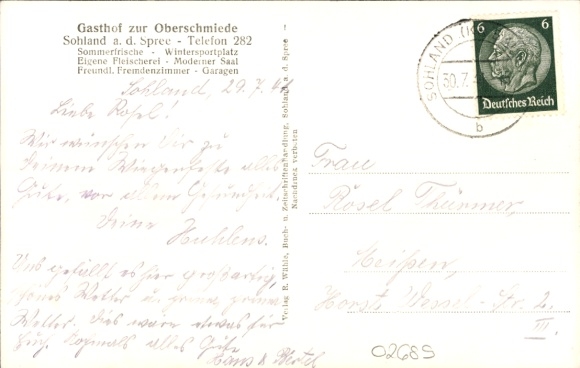 Gasthof zur Oberschmiede
Sohland a. d. Spree - Telefon 282
Sommerfrische - Wintersportplatz
Eigene Fleischerei - Moderner Saal
Freundl. Fremdenzimmer - Garagen
Sohland, 29.7.41
Liebe Rosel!
Wir wünschen Dir zu
Deinem Wiegenfeste alles
Gute, vor allem Gesundheit.
Deine
Uns gefällt es hier großartig,
schönes Wetter u. prima, prima
Dies wäre etwas für
Euch. Nochmals alles Gute
Hans u. Bertel
Verlag R. Wähle, Buch- u. Zeitschriftenhandlung, Sohland a. d. Spree
Nachdruck verboten
SOHLAND
30.7.
b
6 6
Deutsches Reich
Frau
Rösel Thümmer,
Meißen,
Horst Wessel-Str. 2.
III.
02685